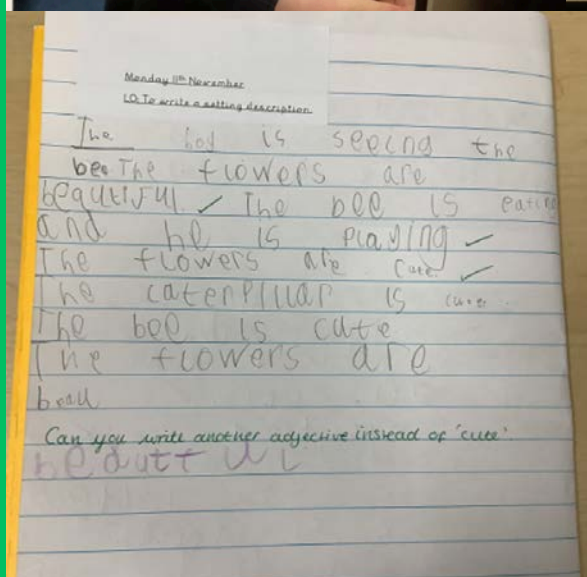 Monday 11th November
LO: To write a setting description.
The boy is seeing the
bee The flowers are
beautiful. ✓ The bee is eating
and he is playing ✓
The flowers are cute. ✓
The caterpillar is cute
The bee is cute
The flowers are
beau
Can you write another adjective instead of 'cute'.
beautt u l